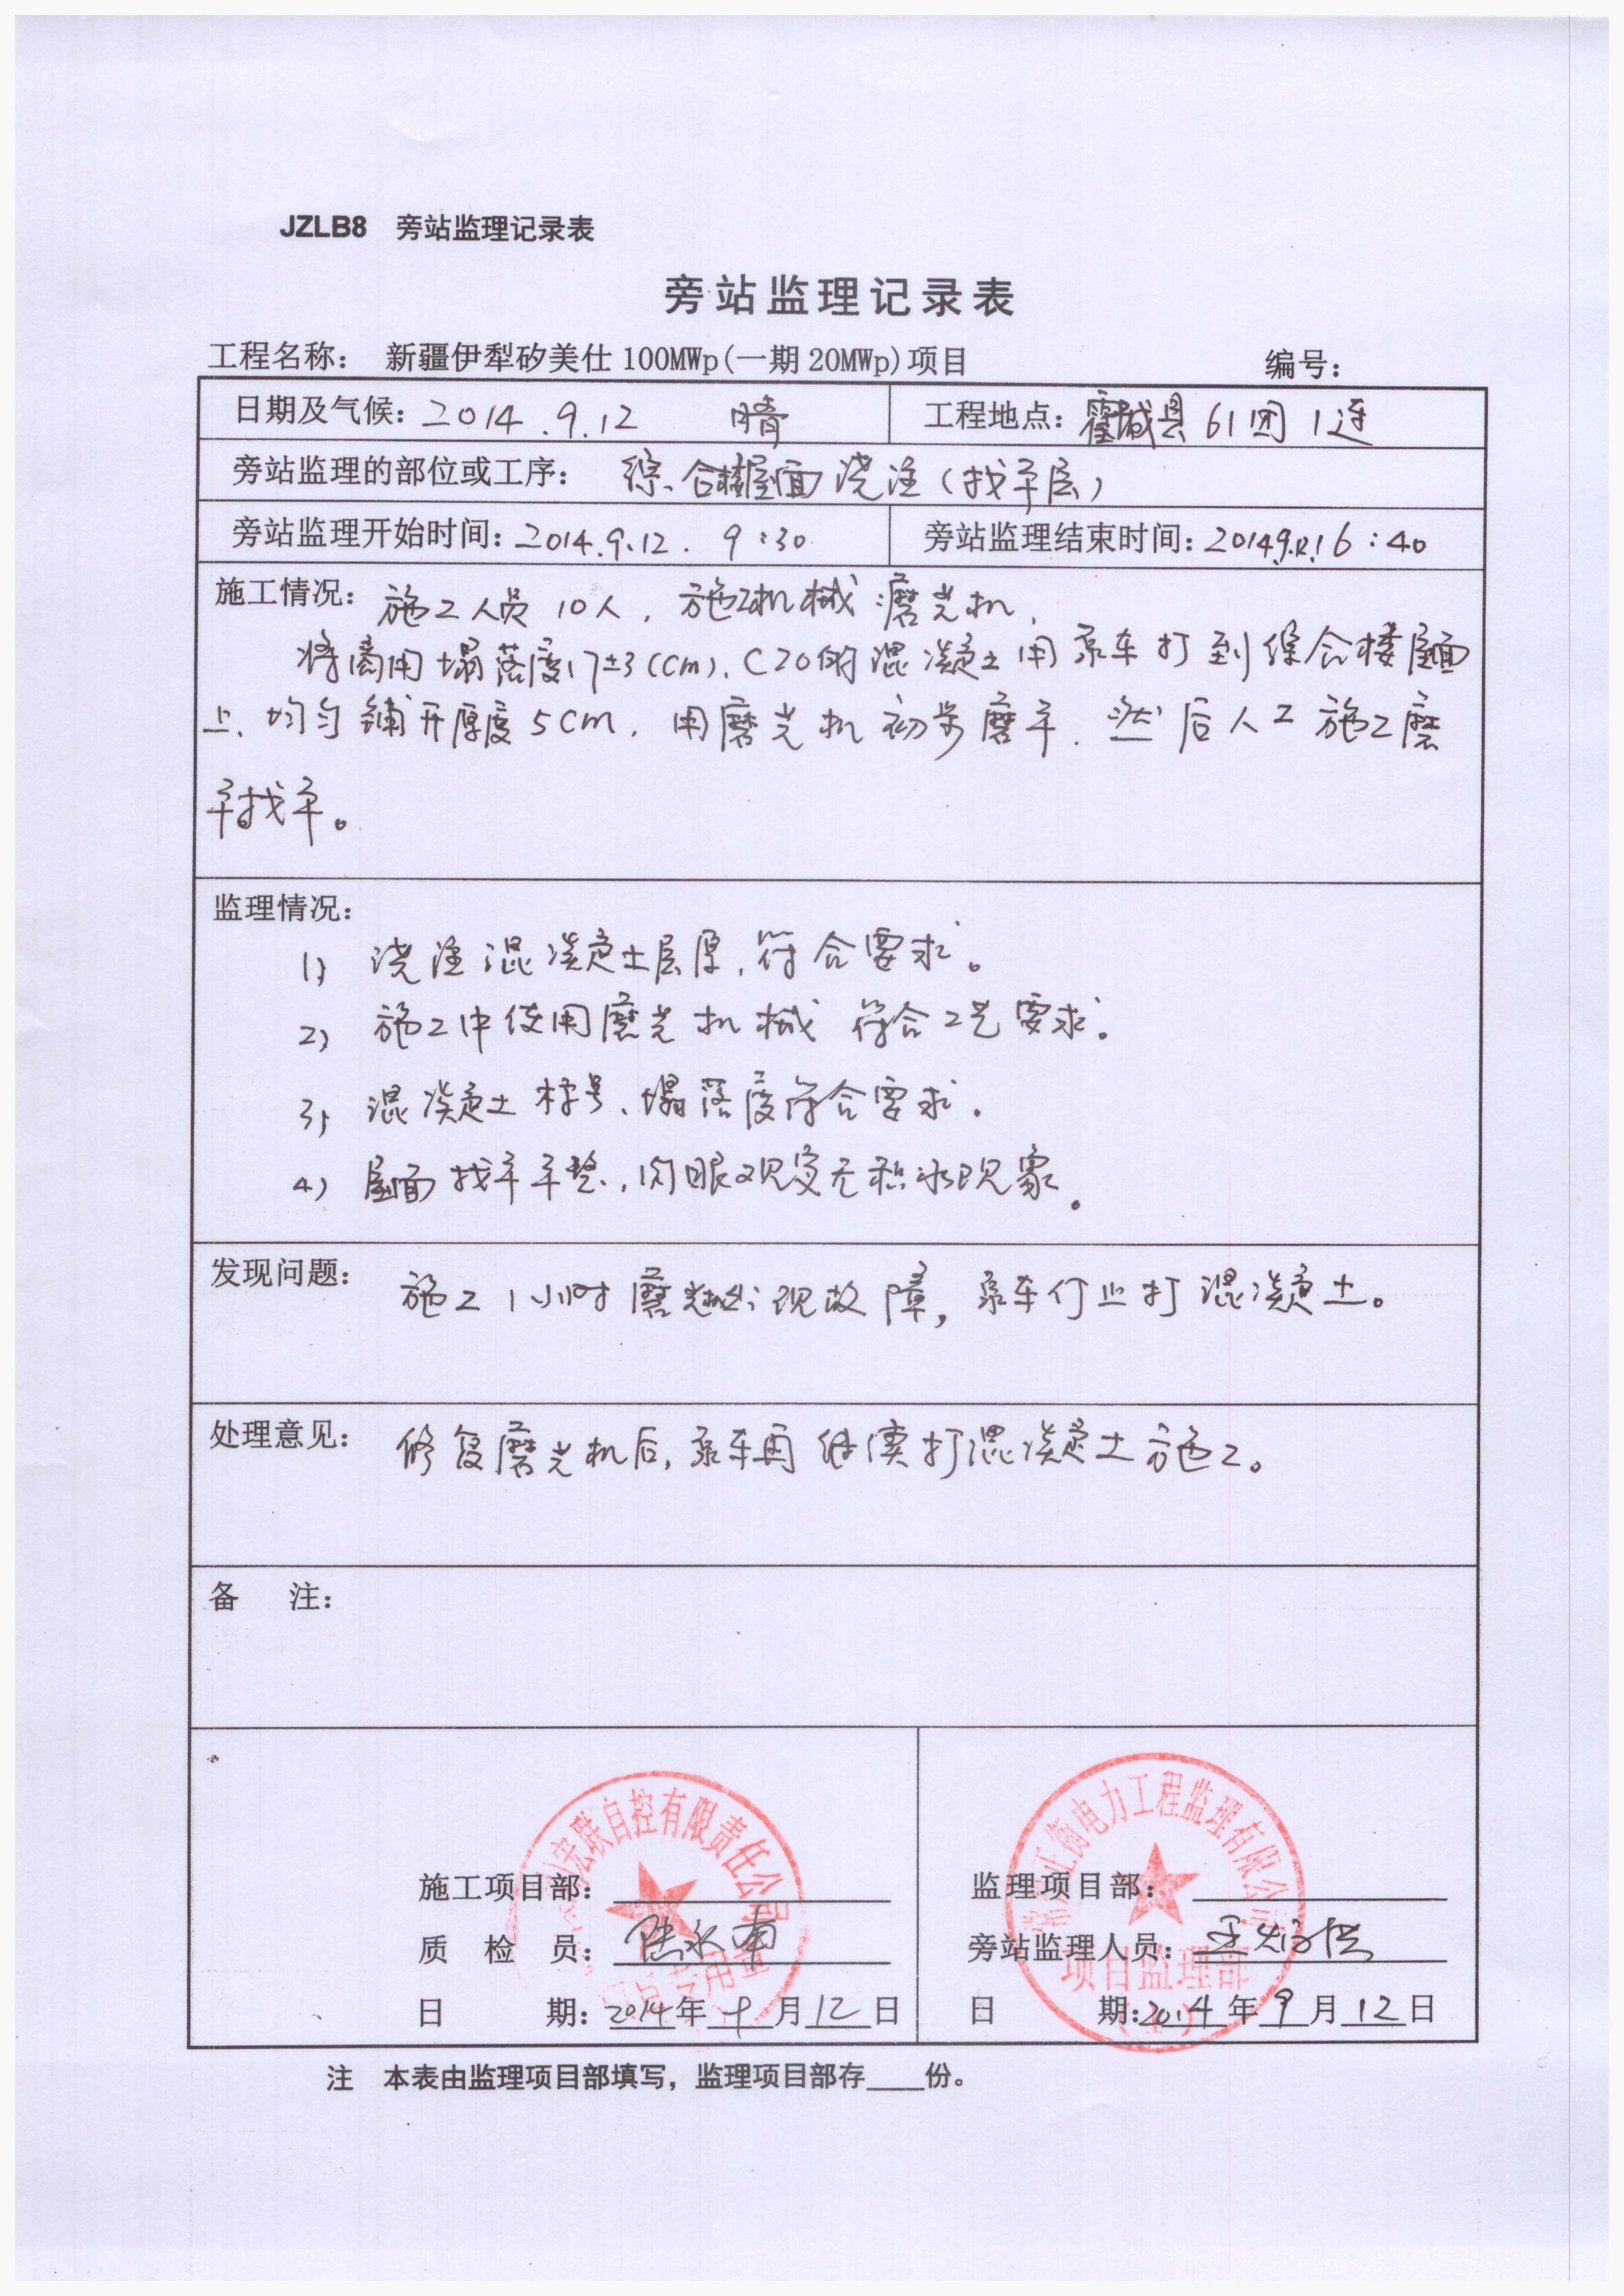 JZLB8 旁站监理记录表
旁站监理记录表
工程名称： 新疆伊犁矽美仕100MWp(一期20MWp)项目 编号：
日期及气候：2014.9.12 晴 工程地点：霍城县61团1连
旁站监理的部位或工序： 综合楼屋面浇注（找平层）
旁站监理开始时间：2014.9.12. 9:30 旁站监理结束时间：2014.9.12.16:40
施工情况：施工人员10人，施工机械：磨光机，
将商用塌落度17±3(cm)，C20的混凝土用泵车打到综合楼屋面
上，均匀铺开厚度5cm，用磨光机初步磨平，然后人工施工磨
平找平。
监理情况：
1) 浇注混凝土层厚，符合要求。
2) 施工中使用磨光机械 符合工艺要求。
3) 混凝土标号、塌落度符合要求。
4) 屋面找平平整，肉眼观察无积水现象。
发现问题： 施工1小时磨光机出现故障，泵车停止打混凝土。
处理意见： 修复磨光机后，泵车再继续打混凝土施工。
备 注：
宏联自控有限责任公司
专用章
正衡电力工程监理有限公司
项目监理部
施工项目部： 监理项目部：
质 检 员： 旁站监理人员：
日 期：2014年9月12日 日 期：2014年9月12日
注 本表由监理项目部填写，监理项目部存 份。